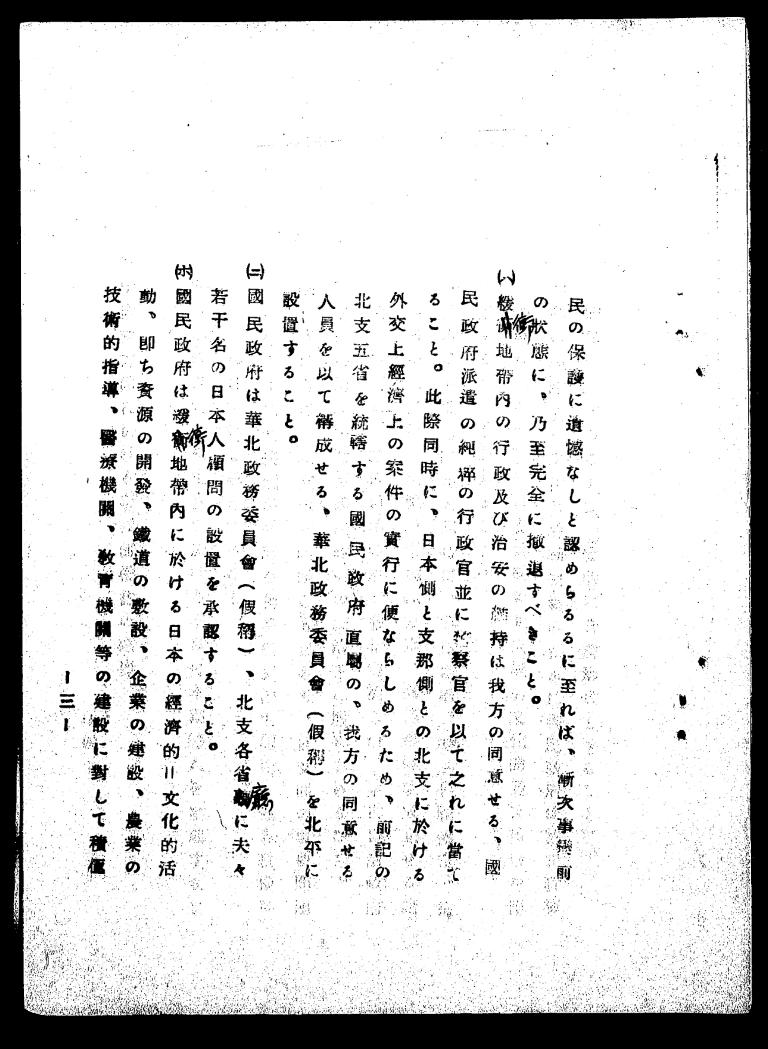 民の保護に遺憾なしと認めらるるに至れば、漸次事變前
の狀態に、乃至完全に撤退すべきこと。
(ハ)緩衝地帶內の行政及び治安の維持は我方の同意せる、國
民政府派遣の純粹の行政官並に警察官を以て之れに當て
ること。此際同時に、日本側と支那側との北支に於ける
外交上經濟上の案件の實行に便ならしめるため、前記の
北支五省を統轄する國民政府直屬の、我方の同意せる
人員を以て構成せる、華北政務委員會(假稱)を北平に
設置すること。
(ニ)國民政府は華北政務委員會(假稱)、北支各省廳に夫々
若干名の日本人顧問の設置を承認すること。
(ホ)國民政府は緩衝地帶內に於ける日本の經濟的=文化的活
動、卽ち資源の開發、鐵道の敷設、企業の建設、農業の
技術的指導、醫療機關、敎育機關等の建設に對して積極
―三―